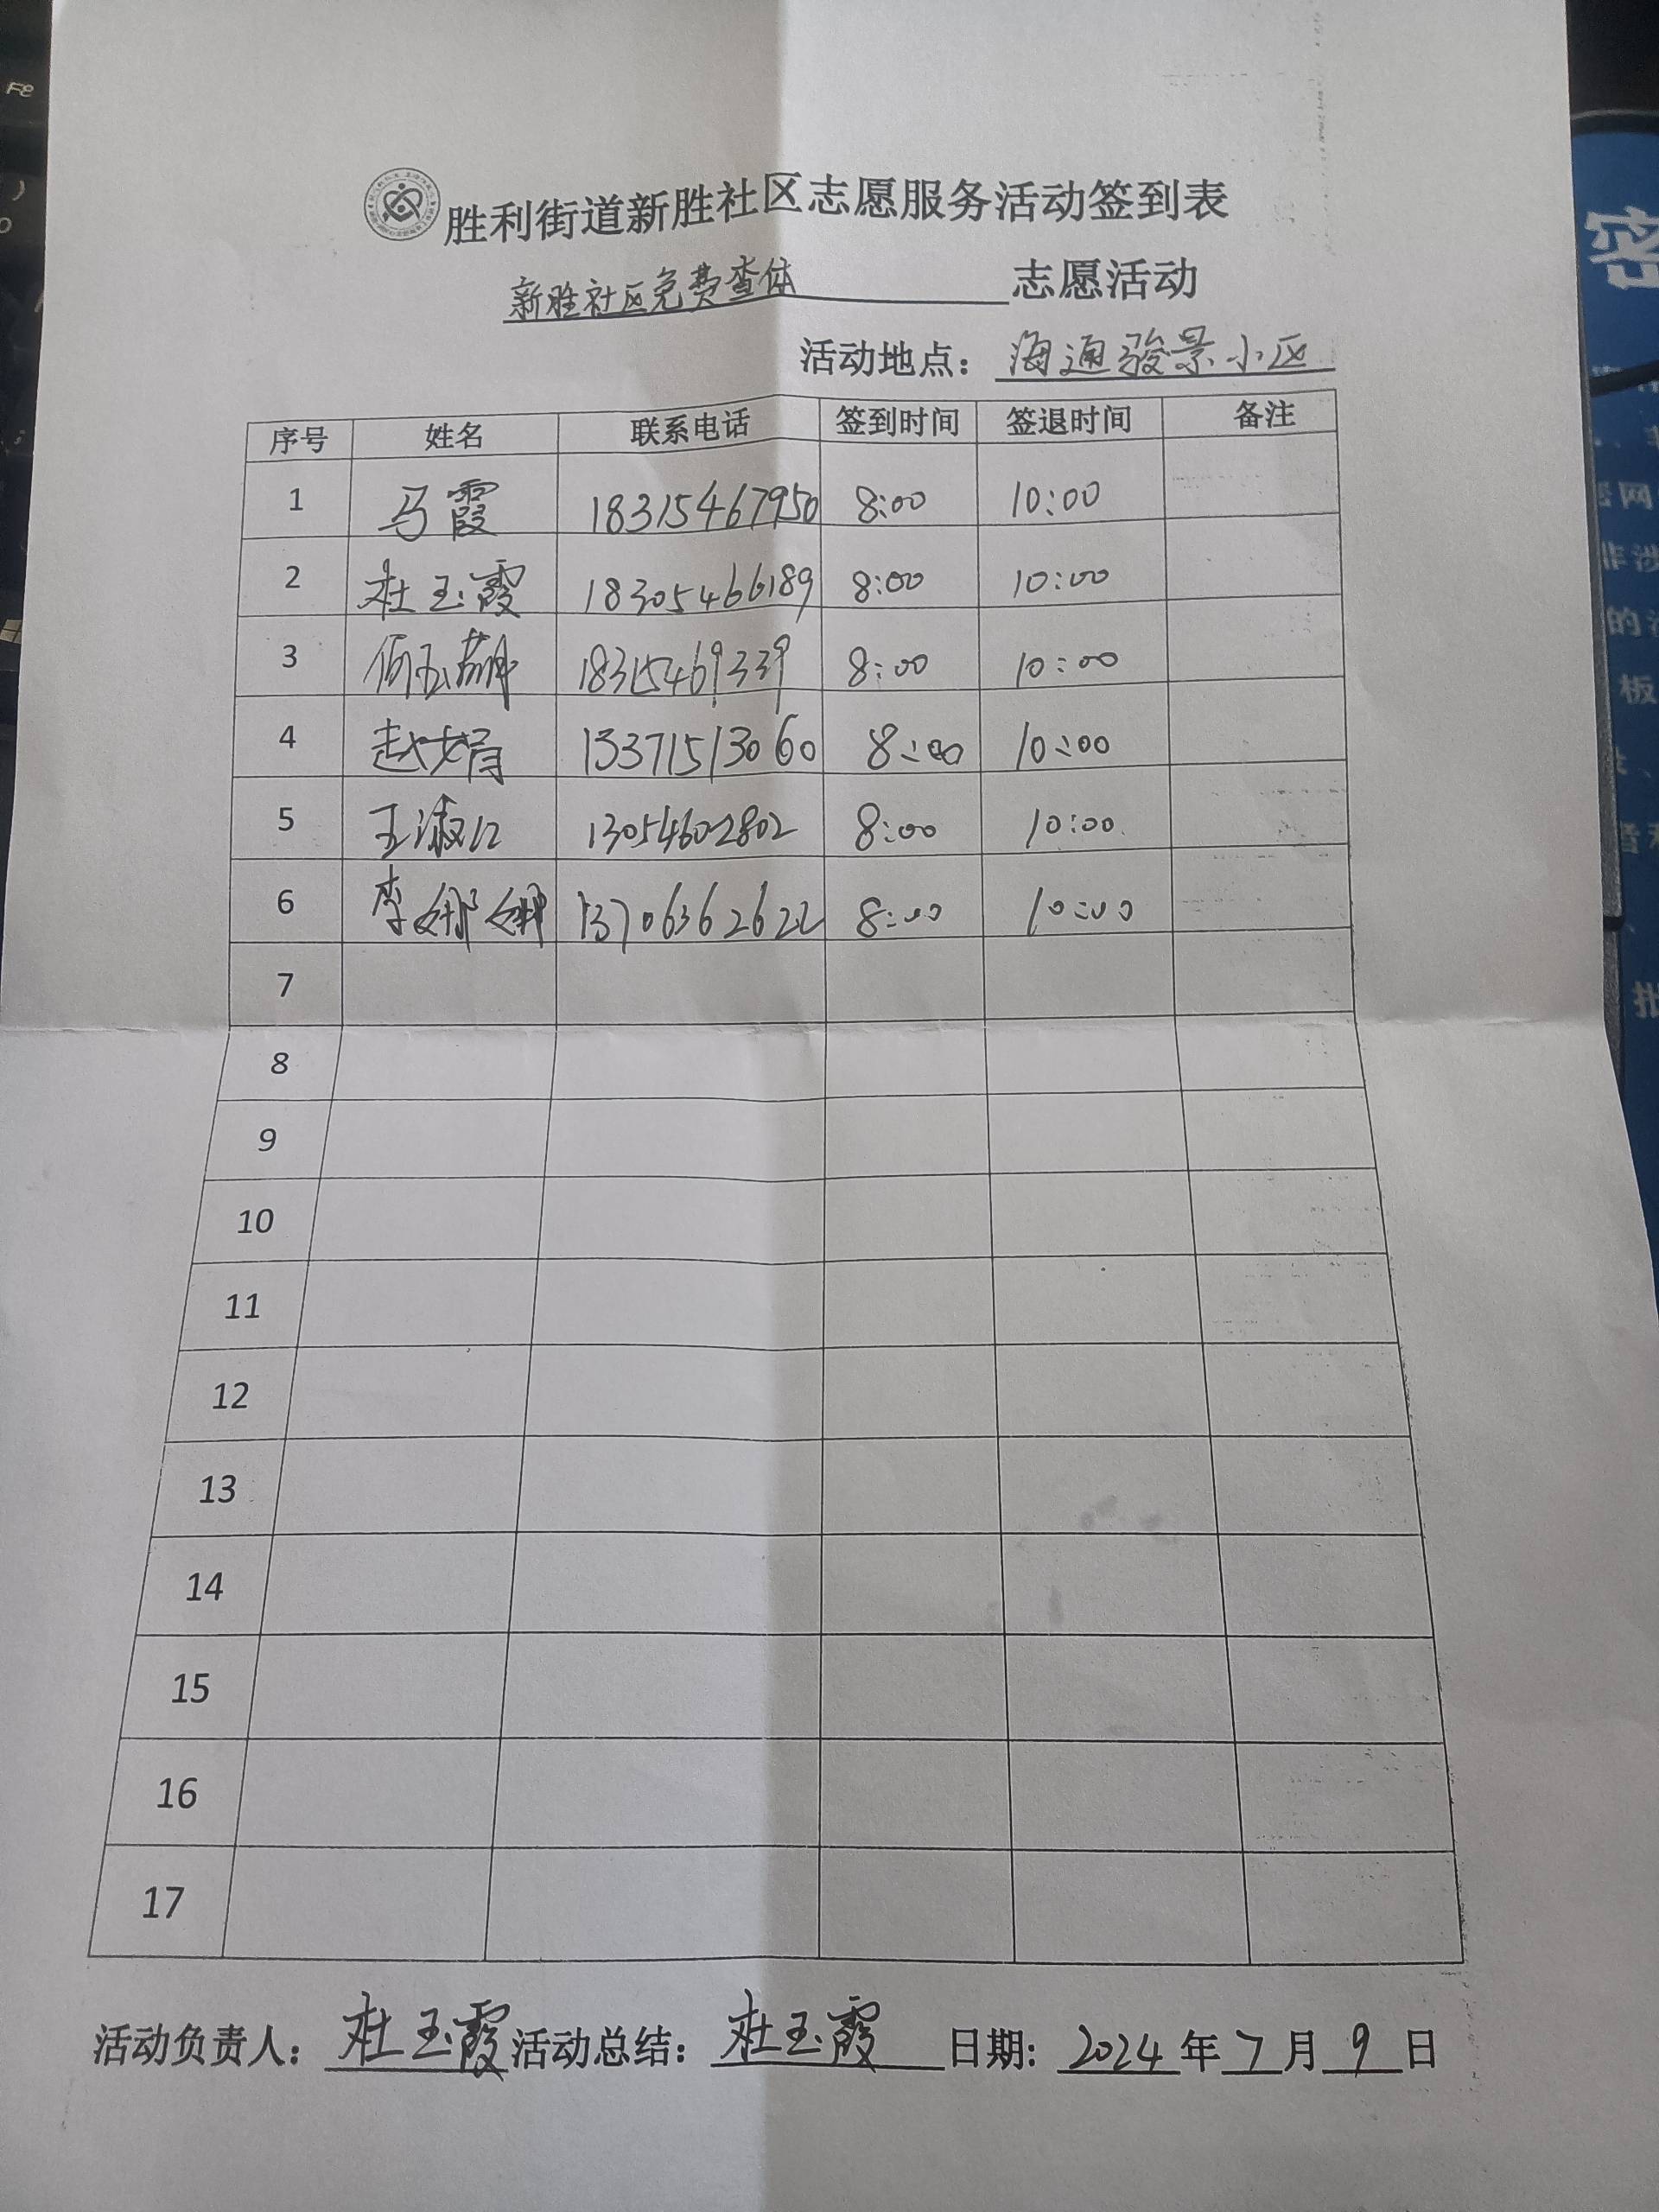 胜利街道新胜社区志愿服务活动签到表
新胜社区免费查体 志愿活动
活动地点：海通骏景小区
序号 姓名 联系电话 签到时间 签退时间 备注
1 马霞 18315467950 8:00 10:00
2 杜玉霞 18305466189 8:00 10:00
3 18315469339 8:00 10:00
4 赵婧 13371513060 8:00 10:00
5 王淑江 13054602802 8:00 10:00
6 李娜娜 13706362622 8:00 10:00
7
8
9
10
11
12
13
14
15
16
17
活动负责人：杜玉霞 活动总结：杜玉霞 日期：2024年7月9日
密
网
非涉
的
板
音
批